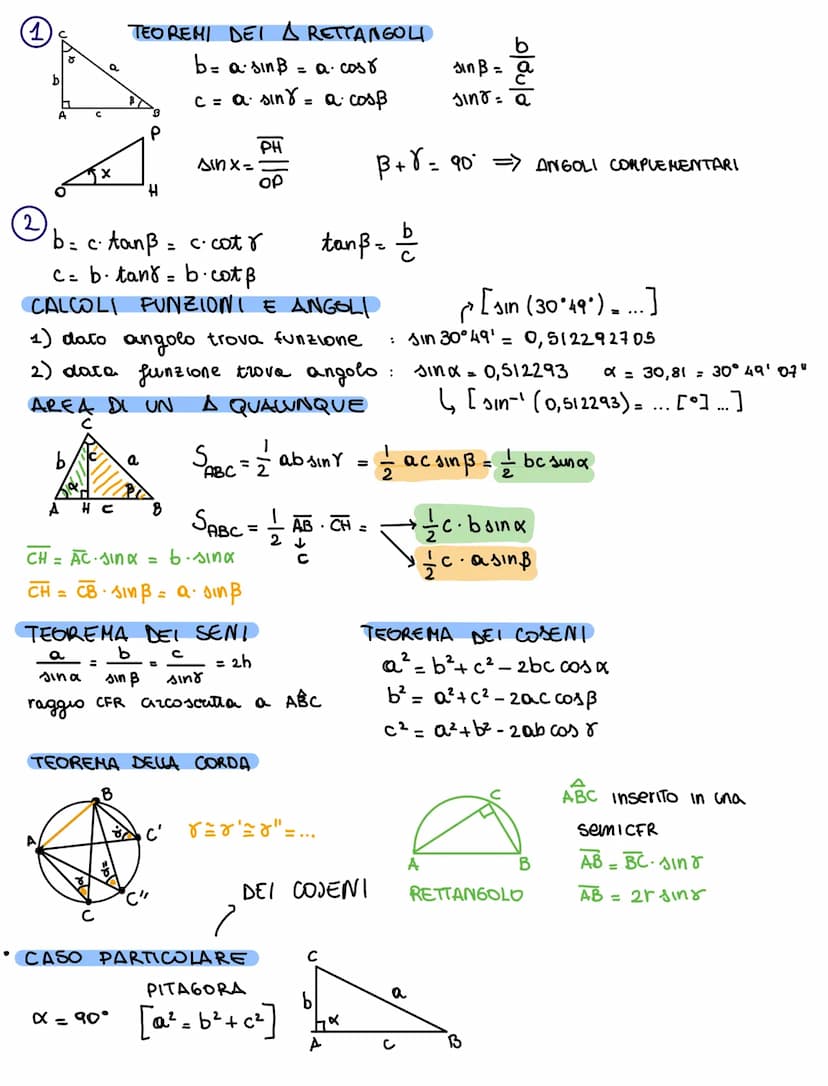 1 TEOREMI DEI Δ RETTANGOLI
C
γ
a
b
β
A c B
b = a · sin β = a · cos γ sin β = b/a
c = a · sin γ = a · cos β sin γ = c/a
P
x
O H
sin x = PH/OP β + γ = 90° ⇒ ANGOLI COMPLEMENTARI
2
b = c · tan β = c · cot γ tan β = b/c
c = b · tan γ = b · cot β
CALCOLI FUNZIONI E ANGOLI [sin (30°49°) = ...]
1) dato angolo trova funzione : sin 30°49' = 0,512292705
2) data funzione trova angolo : sin α = 0,512293 α = 30,81 = 30° 49' 07"
AREA DI UN Δ QUALUNQUE ↳ [sin⁻¹ (0,512293) = ... [°] ...]
C
b C a
α β
A H C B
S ABC = 1/2 ab sin γ = 1/2 ac sin β = 1/2 bc sin α
S ABC = 1/2 AB · CH = → 1/2 c · b sin α
↓
c
→ 1/2 c · a sin β
CH = AC · sin α = b · sin α
CH = CB · sin β = a · sin β
TEOREMA DEI SENI
a/sin α = b/sin β = c/sin γ = 2h
raggio CFR circoscritta a AB̂C
TEOREMA DEI COSENI
a² = b² + c² - 2bc cos α
b² = a² + c² - 2ac cos β
c² = a² + b² - 2ab cos γ
TEOREMA DELLA CORDA
B
A
γ' C'
γ γ"
C"
C
γ ≅ γ' ≅ γ" = ...
C
A B
RETTANGOLO
ABC inserito in una
semiCFR
AB = BC · sin γ
AB = 2r sin γ
DEI COSENI
• CASO PARTICOLARE
PITAGORA
α = 90° [a² = b² + c²]
C
b a
α
A c B